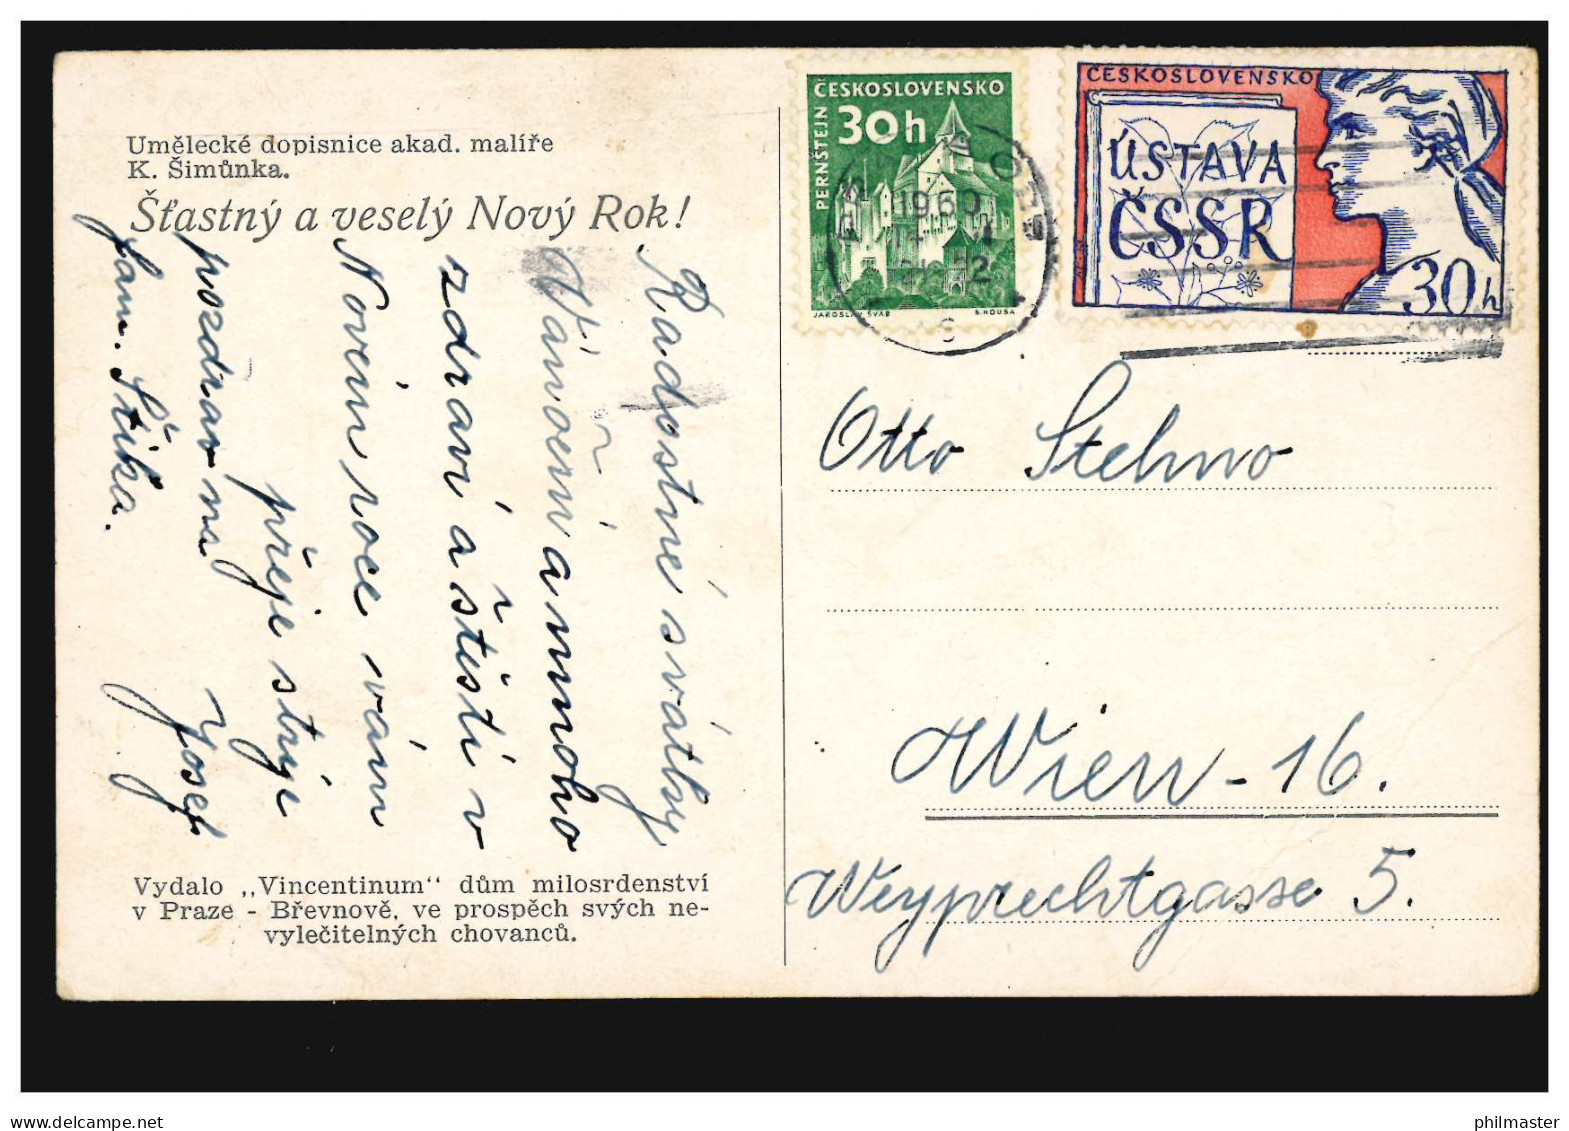 Umělecké dopisnice akad. malíře
K. Šimůnka.
Šťastný a veselý Nový Rok!
Radostné svátky
Vánoční a mnoho
zdraví a štěstí v
Novém roce vám
přeje strýc
Josef
pozdrav na
fam. Šiška.
Vydalo „Vincentinum“ dům milosrdenství
v Praze - Břevnově, ve prospěch svých ne-
vylečitelných chovanců.
ČESKOSLOVENSKO
30h
PERNŠTEJN
JAROSLAV ŠVÁB
B. HOUSA
1960
ČESKOSLOVENSKO
ÚSTAVA
ČSSR
30h
Otto Stehno
Wien - 16.
Weyprechtgasse 5.
www.delcampe.net
philmaster